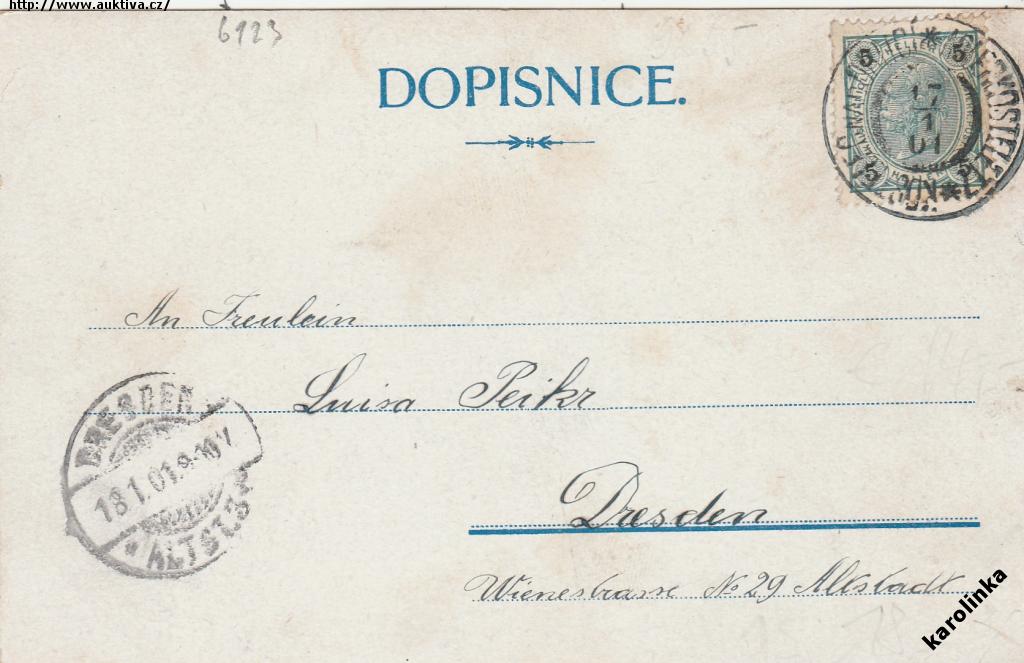 http://www.auktiva.cz/
6123
DOPISNICE.
5 5
17
1
01
An Freulein
Luisa Peikr
DRESDEN
18.1.01.9-10V.
* ALTST.
Dresden
Wienestrasse No 29 Altstadt
karolinka